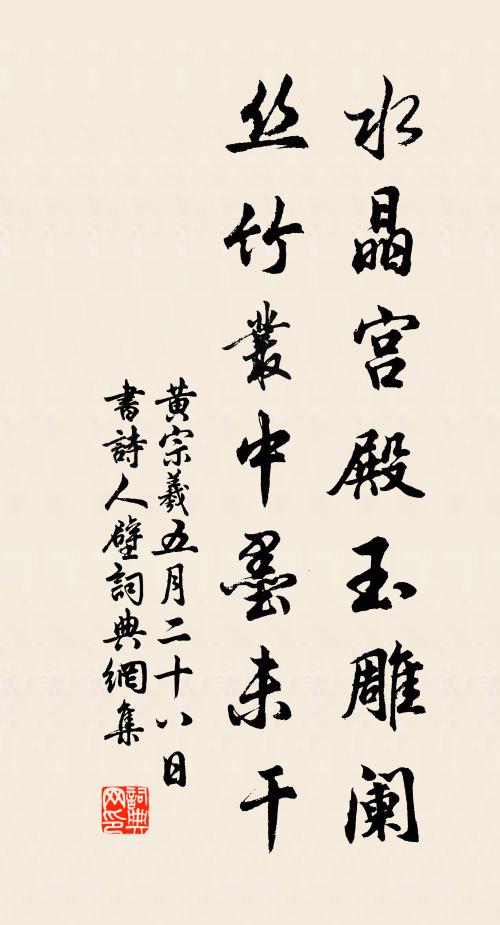 水晶宫殿玉雕阑
丝竹叢中墨未干
黄宗羲五月二十八日
書詩人壁詞典網集
詞典网印